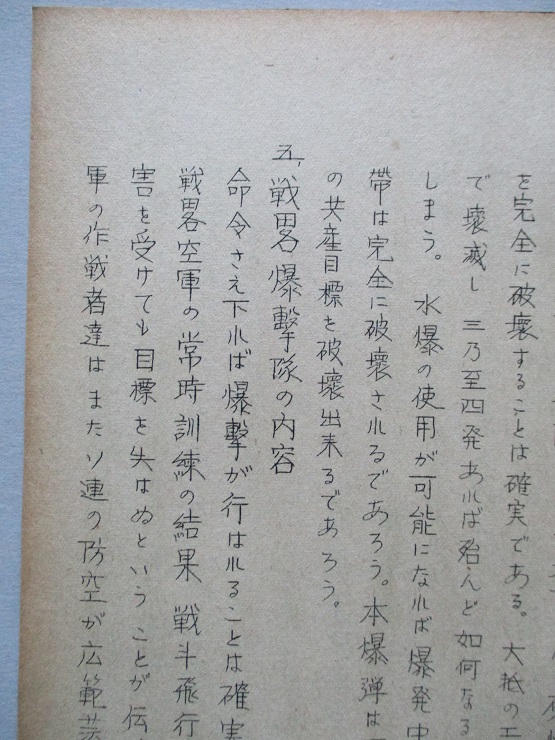 を完全に破壊することは確実である。大抵の工
で壊滅し 三乃至四発あれば殆んど如何なる
しまう。 水爆の使用が可能になれば爆発中
帯は完全に破壊されるであろう。本爆弾は
の共産目標を破壊出来るであろう。
五、戦畧爆撃隊の内容
命令さえ下れば爆撃が行はれることは確実
戦畧空軍の常時訓練の結果 戦斗飛行
害を受けても目標を失はぬということが伝
軍の作戦者達はまたソ連の防空が広範